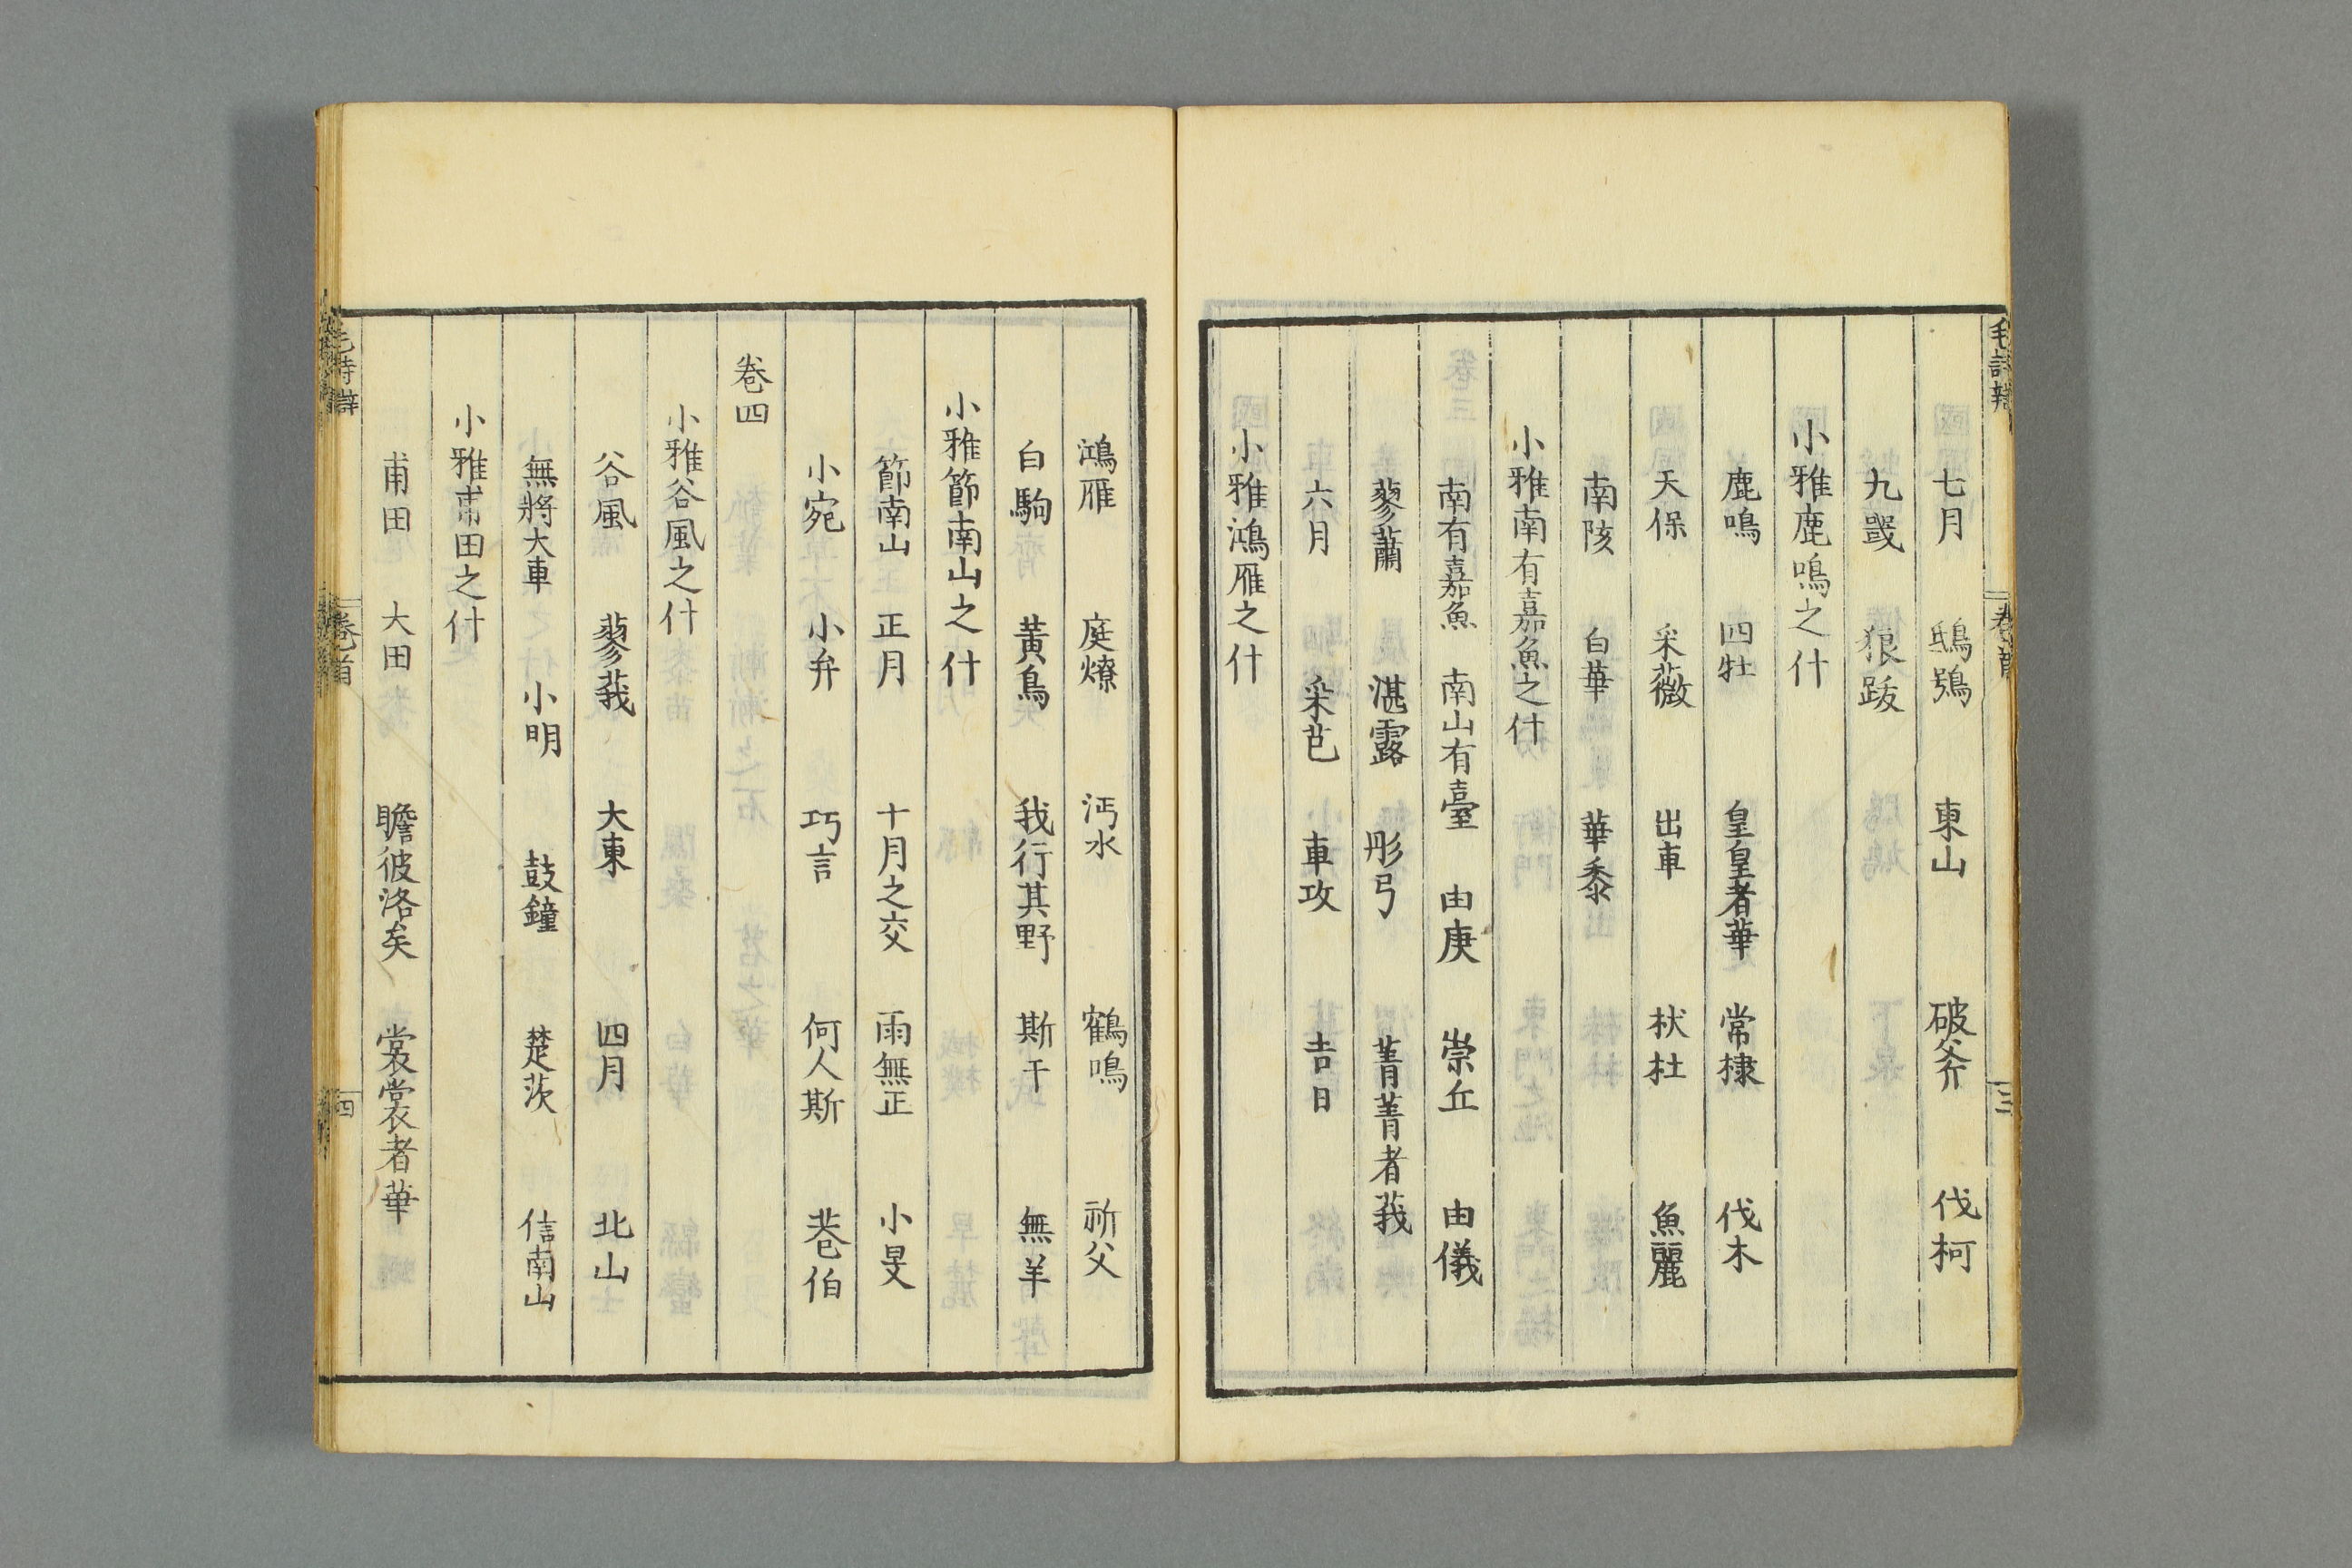 七月 鴟鴞 東山 破斧 伐柯
九罭 狼跋
小雅鹿鳴之什
鹿鳴 四牡 皇皇者華 常棣 伐木
天保 采薇 出車 杕杜 魚麗
南陔 白華 華黍
小雅南有嘉魚之什
南有嘉魚 南山有臺 由庚 崇丘 由儀
蓼蕭 湛露 彤弓 菁菁者莪
六月 采芑 車攻 吉日
小雅鴻雁之什
鴻雁 庭燎 沔水 鶴鳴 祈父
白駒 黃鳥 我行其野 斯干 無羊
小雅節南山之什
節南山 正月 十月之交 雨無正 小旻
小宛 小弁 巧言 何人斯 巷伯
卷四
小雅谷風之什
谷風 蓼莪 大東 四月 北山
無將大車 小明 鼓鐘 楚茨 信南山
小雅甫田之什
甫田 大田 瞻彼洛矣 裳裳者華
卷首
四